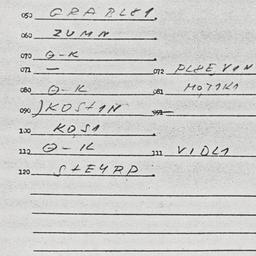 050 GRABLEI
060 ZUMM
070 O-K
071 — 072 PLEEVIN
080 O-K 081 MOTIKI
090 )KOSTIN 091
100 KOSI
110 O-K 111 VIDLI
120 STEYRP